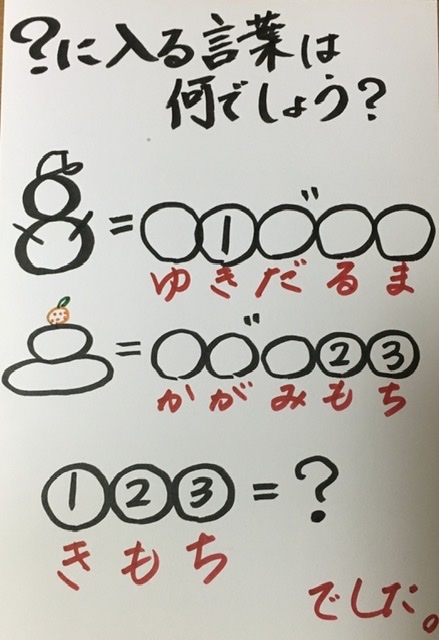 ?に入る言葉は
何でしょう?
=○①○゛○○
ゆきだるま
=○○゛○②③
かがみもち
①②③=?
きもち
でした。